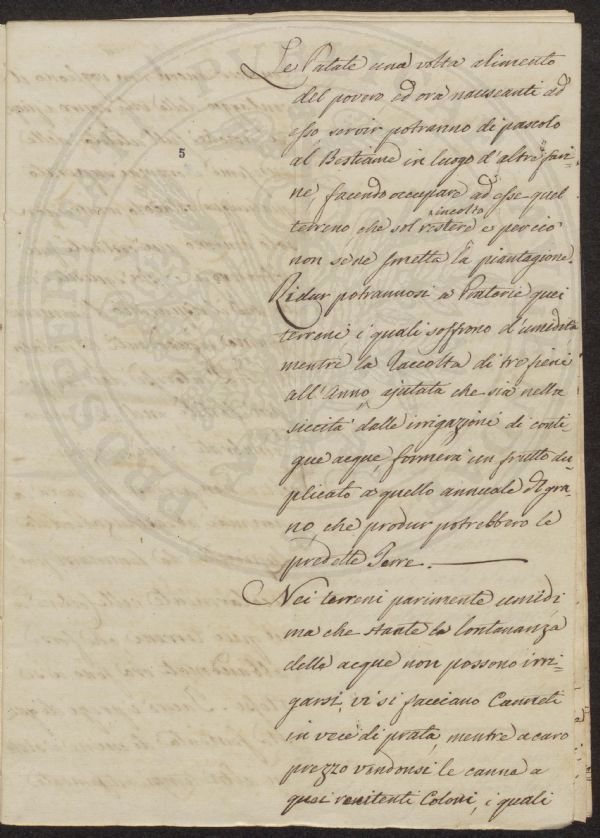 Le Patate una volta alimento
del povero ed ora nauseanti ad
esso servir potranno di pascolo
5
al Bestiame in luogo d'altre fari-
ne, facendo occupare ad esse quel
incolto
terreno che sol restere e perciò
non se ne smetta la piantagione.
Ridur potrannosi a Praterie quei
terreni, i quali soffrono d'umidità
mentre la Raccolta di tre fieni
all'Anno, ajutata che sia nella
siccità dalle irrigazioni di conti-
gue acque, formerà un frutto du-
plicato a quello annuale di gra-
no, che produr potrebbero le
predette Terre.
Nei terreni parimente umidi
ma che stante la lontananza
delle acque non possono irri-
garsi, vi si facciano Canneti
in vece di prata, mentre a caro
prezzo vendonsi le canne a
quei renitenti Coloni, i quali